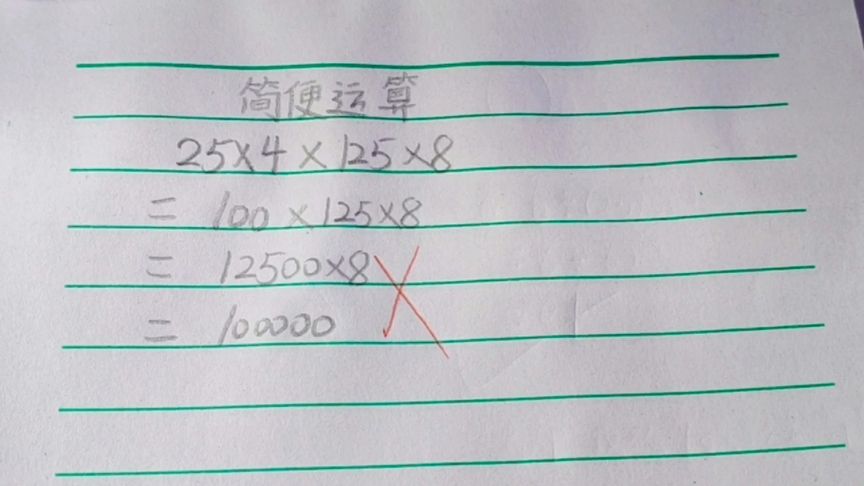 简便运算
25×4×125×8
= 100×125×8
= 12500×8
= 100000